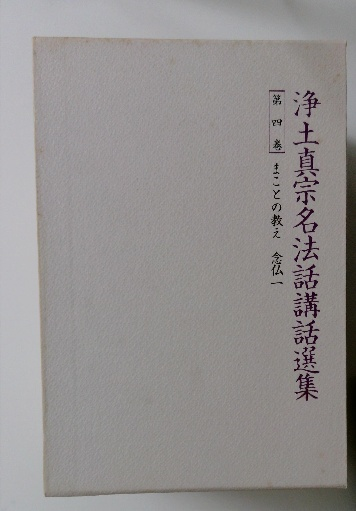 浄土真宗名法話講話選集
第四巻 まことの教え 念仏一